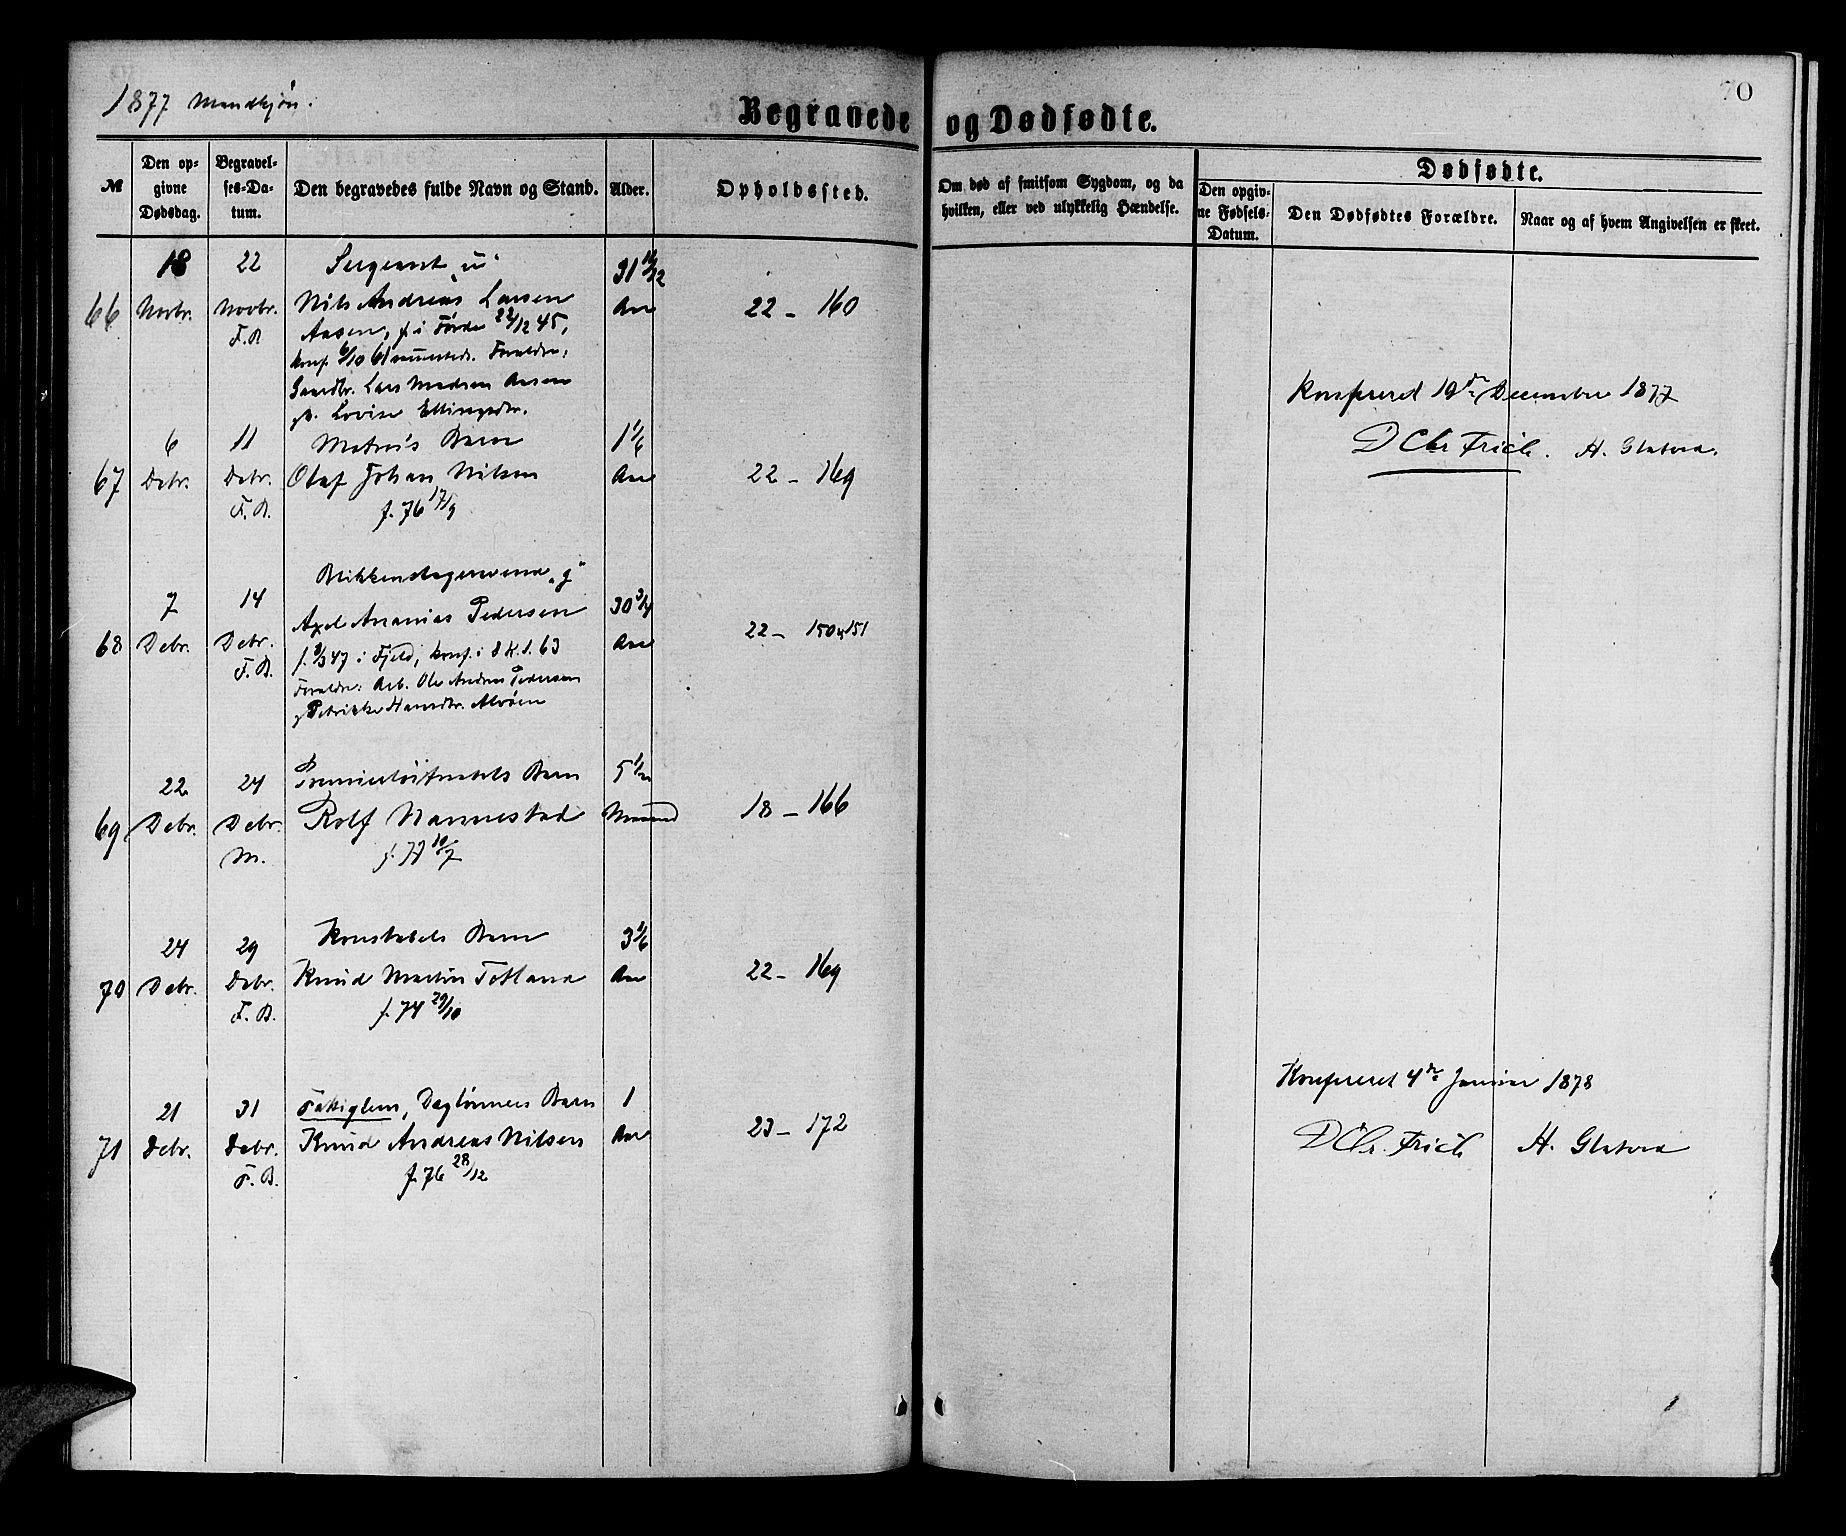 1877 Mandkjøn.
70
Begravede og Dødfødte.
№
Den op-
givne
Dødsdag.
Begravel-
ses-Da-
tum.
Den begravedes fulde Navn og Stand.
Alder.
Opholdssted.
Om død af smitsom Sygdom, og da
hvilken, eller ved ulykkelig Hændelse.
Dødfødte.
Den opgiv-
ne Fødsels-
Datum.
Den Dødfødtes Forældre.
Naar og af hvem Angivelsen er skeet.
66
18
Novbr.
22
Novbr.
F. B.
Sergeant "u"
Nils Andreas Larsen
Aasen, f. i Førde 22/12 45,
konf. 6/10 61 Forældre:
Gaardbr. Lars Madsen Aasen
og Lovise Ellingsdtr.
31 11/12
Aar
22 - 160
Konfereret 19de December 1877
D Chr Frich. H. Glatved.
67
6
Debr.
11
Debr.
F. B.
Matros Barn
Olaf Johan Nilsen
f. 76 17/9
1 1/6
Aar
22 - 169
68
7
Debr.
14
Debr.
F. B.
Blikkenslagersvend "g"
Axel Ananias Pedersen
f. 8/3 47 i Fjeld, konf. i 8 K. 1. 63
Forældre: Arb. Ole Andreas Pedersen
og Petrikke Hansdtr. Alvøen
30 3/4
Aar
22 - 150 & 151
69
22
Debr.
24
Debr.
M.
Premierløitnants Barn
Rolf Nannestad
f. 77 10/7
5 1/2
Maaned
18 - 166
70
24
Debr.
29
Debr.
F. B.
Konstabels Barn
Knud Martin Totland
f. 74 29/10
3 1/6
Aar
22 - 169
Konfereret 4de Januar 1878
D Chr. Frich H. Glatved
71
21
Debr.
31
Debr.
F. B.
Fattiglem, Daglønners Barn
Knud Andreas Nilsen
f. 76 28/12
1
Aar
23 - 172